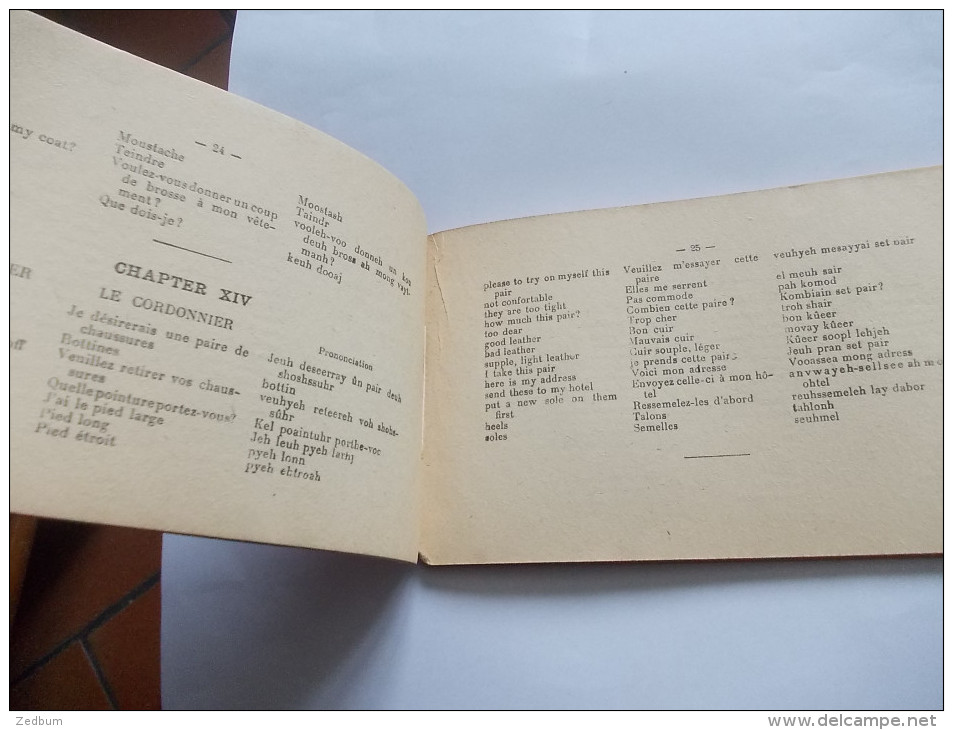 — 24 —
my coat?
Moustache
Teindre
Voulez-vous donner un coup
de brosse à mon vête-
ment?
Que dois-je?
Moostash
Taindr
vooleh-voo donneh un koo
deuh bross ah mong vayt-
manh?
keuh dooaj
CHAPTER XIV
LE CORDONNIER
Je désirerais une paire de
chaussures
Bottines
Venillez retirer vos chaus-
sures
Quelle pointure portez-vous?
J'ai le pied large
Pied long
Pied étroit
Prononciation
Jeuh deseerray ûn pair deuh
shoshsuhr
bottin
veuhyeh reteereh voh shohs-
sûhr
Kel poaintuhr porthe-voc
Jeh leuh pyeh larhj
pyeh lonn
pyeh ehtroah
— 25 —
please to try on myself this
pair
not confortable
they are too tight
how much this pair?
too dear
good leather
bad leather
supple, light leather
I take this pair
here is my address
send these to my hotel
put a new sole on them
first
heels
soles
Veuillez m'essayer cette
paire
Elles me serrent
Pas commode
Combien cette paire?
Trop cher
Bon cuir
Mauvais cuir
Cuir souple, léger
je prends cette paire
Voici mon adresse
Envoyez celle-ci à mon hô-
tel
Ressemelez-les d'abord
Talons
Semelles
veuhyeh mesayyai set pair
el meuh sair
pah komod
Kombiain set pair?
troh shair
bon kûeer
movay kûeer
Kûeer soopl lehjeh
Jeuh pran set pair
Vooassea mong adress
anvwayeh-sellsee ah mo
ohtel
reuhssemeleh lay dabor
tahlonh
seuhmel
Zedbum
www.delcampe.net